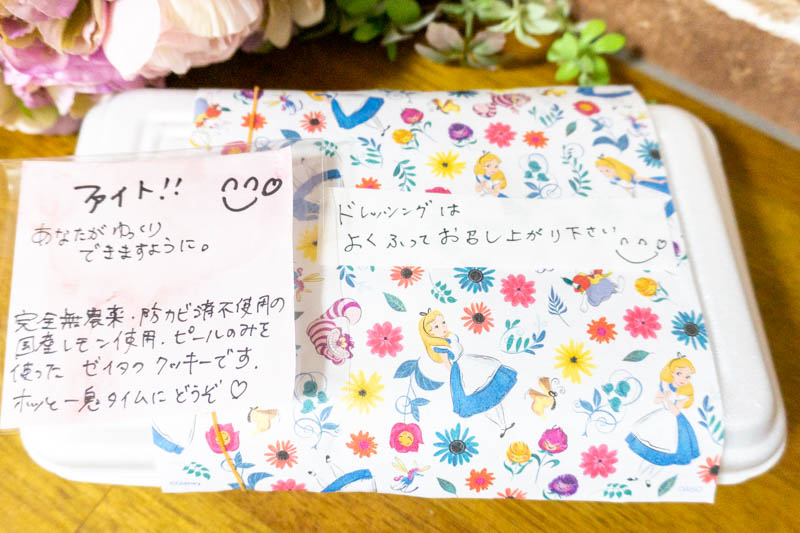 ファイト!!
あなたがゆっくり
できますように。
完全無農薬・防カビ剤不使用の
国産レモン使用.ピールのみを
使った ゼイタク クッキーです.
ホッと一息タイムにどうぞ♡
ドレッシングは
よくふってお召し上がり下さい